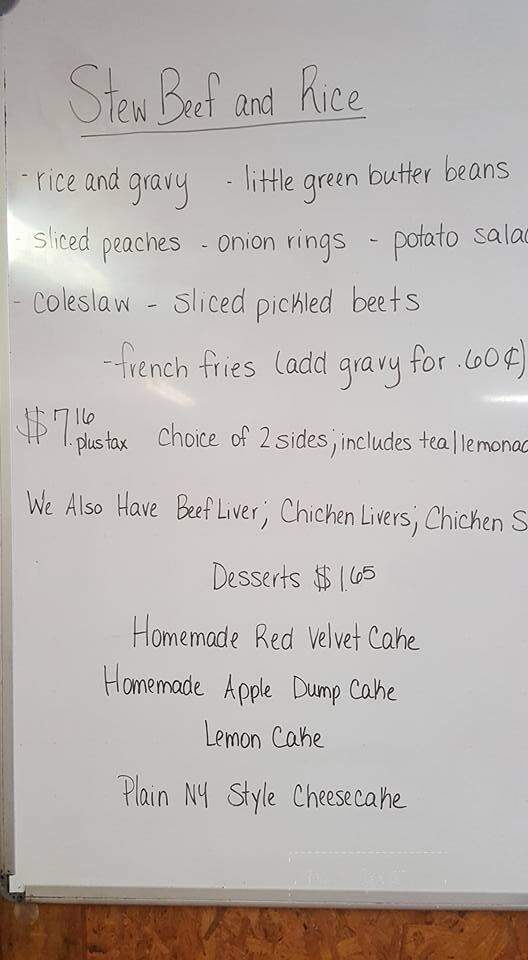 Stew Beef and Rice
- rice and gravy - little green butter beans
- sliced peaches - onion rings - potato salad
- coleslaw - sliced pickled beets
- french fries (add gravy for .60¢)
$7.16 plus tax Choice of 2 sides; includes tea/lemonad
We Also Have Beef Liver; Chicken Livers; Chicken S
Desserts $1.65
Homemade Red Velvet Cake
Homemade Apple Dump Cake
Lemon Cake
Plain NY Style Cheesecake